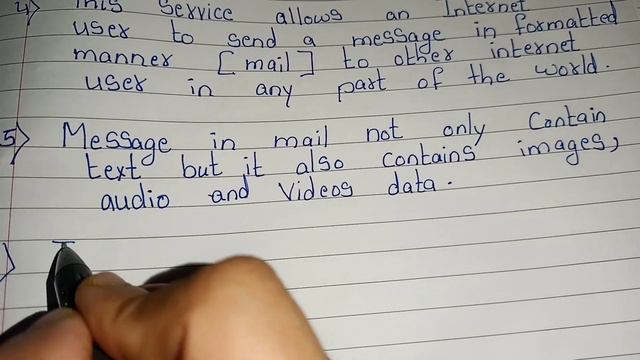 4) This Service allows an Internet
user to send a message in formatted
manner [mail] to other internet
user in any part of the world.
5) Message in mail not only Contain
text but it also contains images,
audio and Videos data.
)